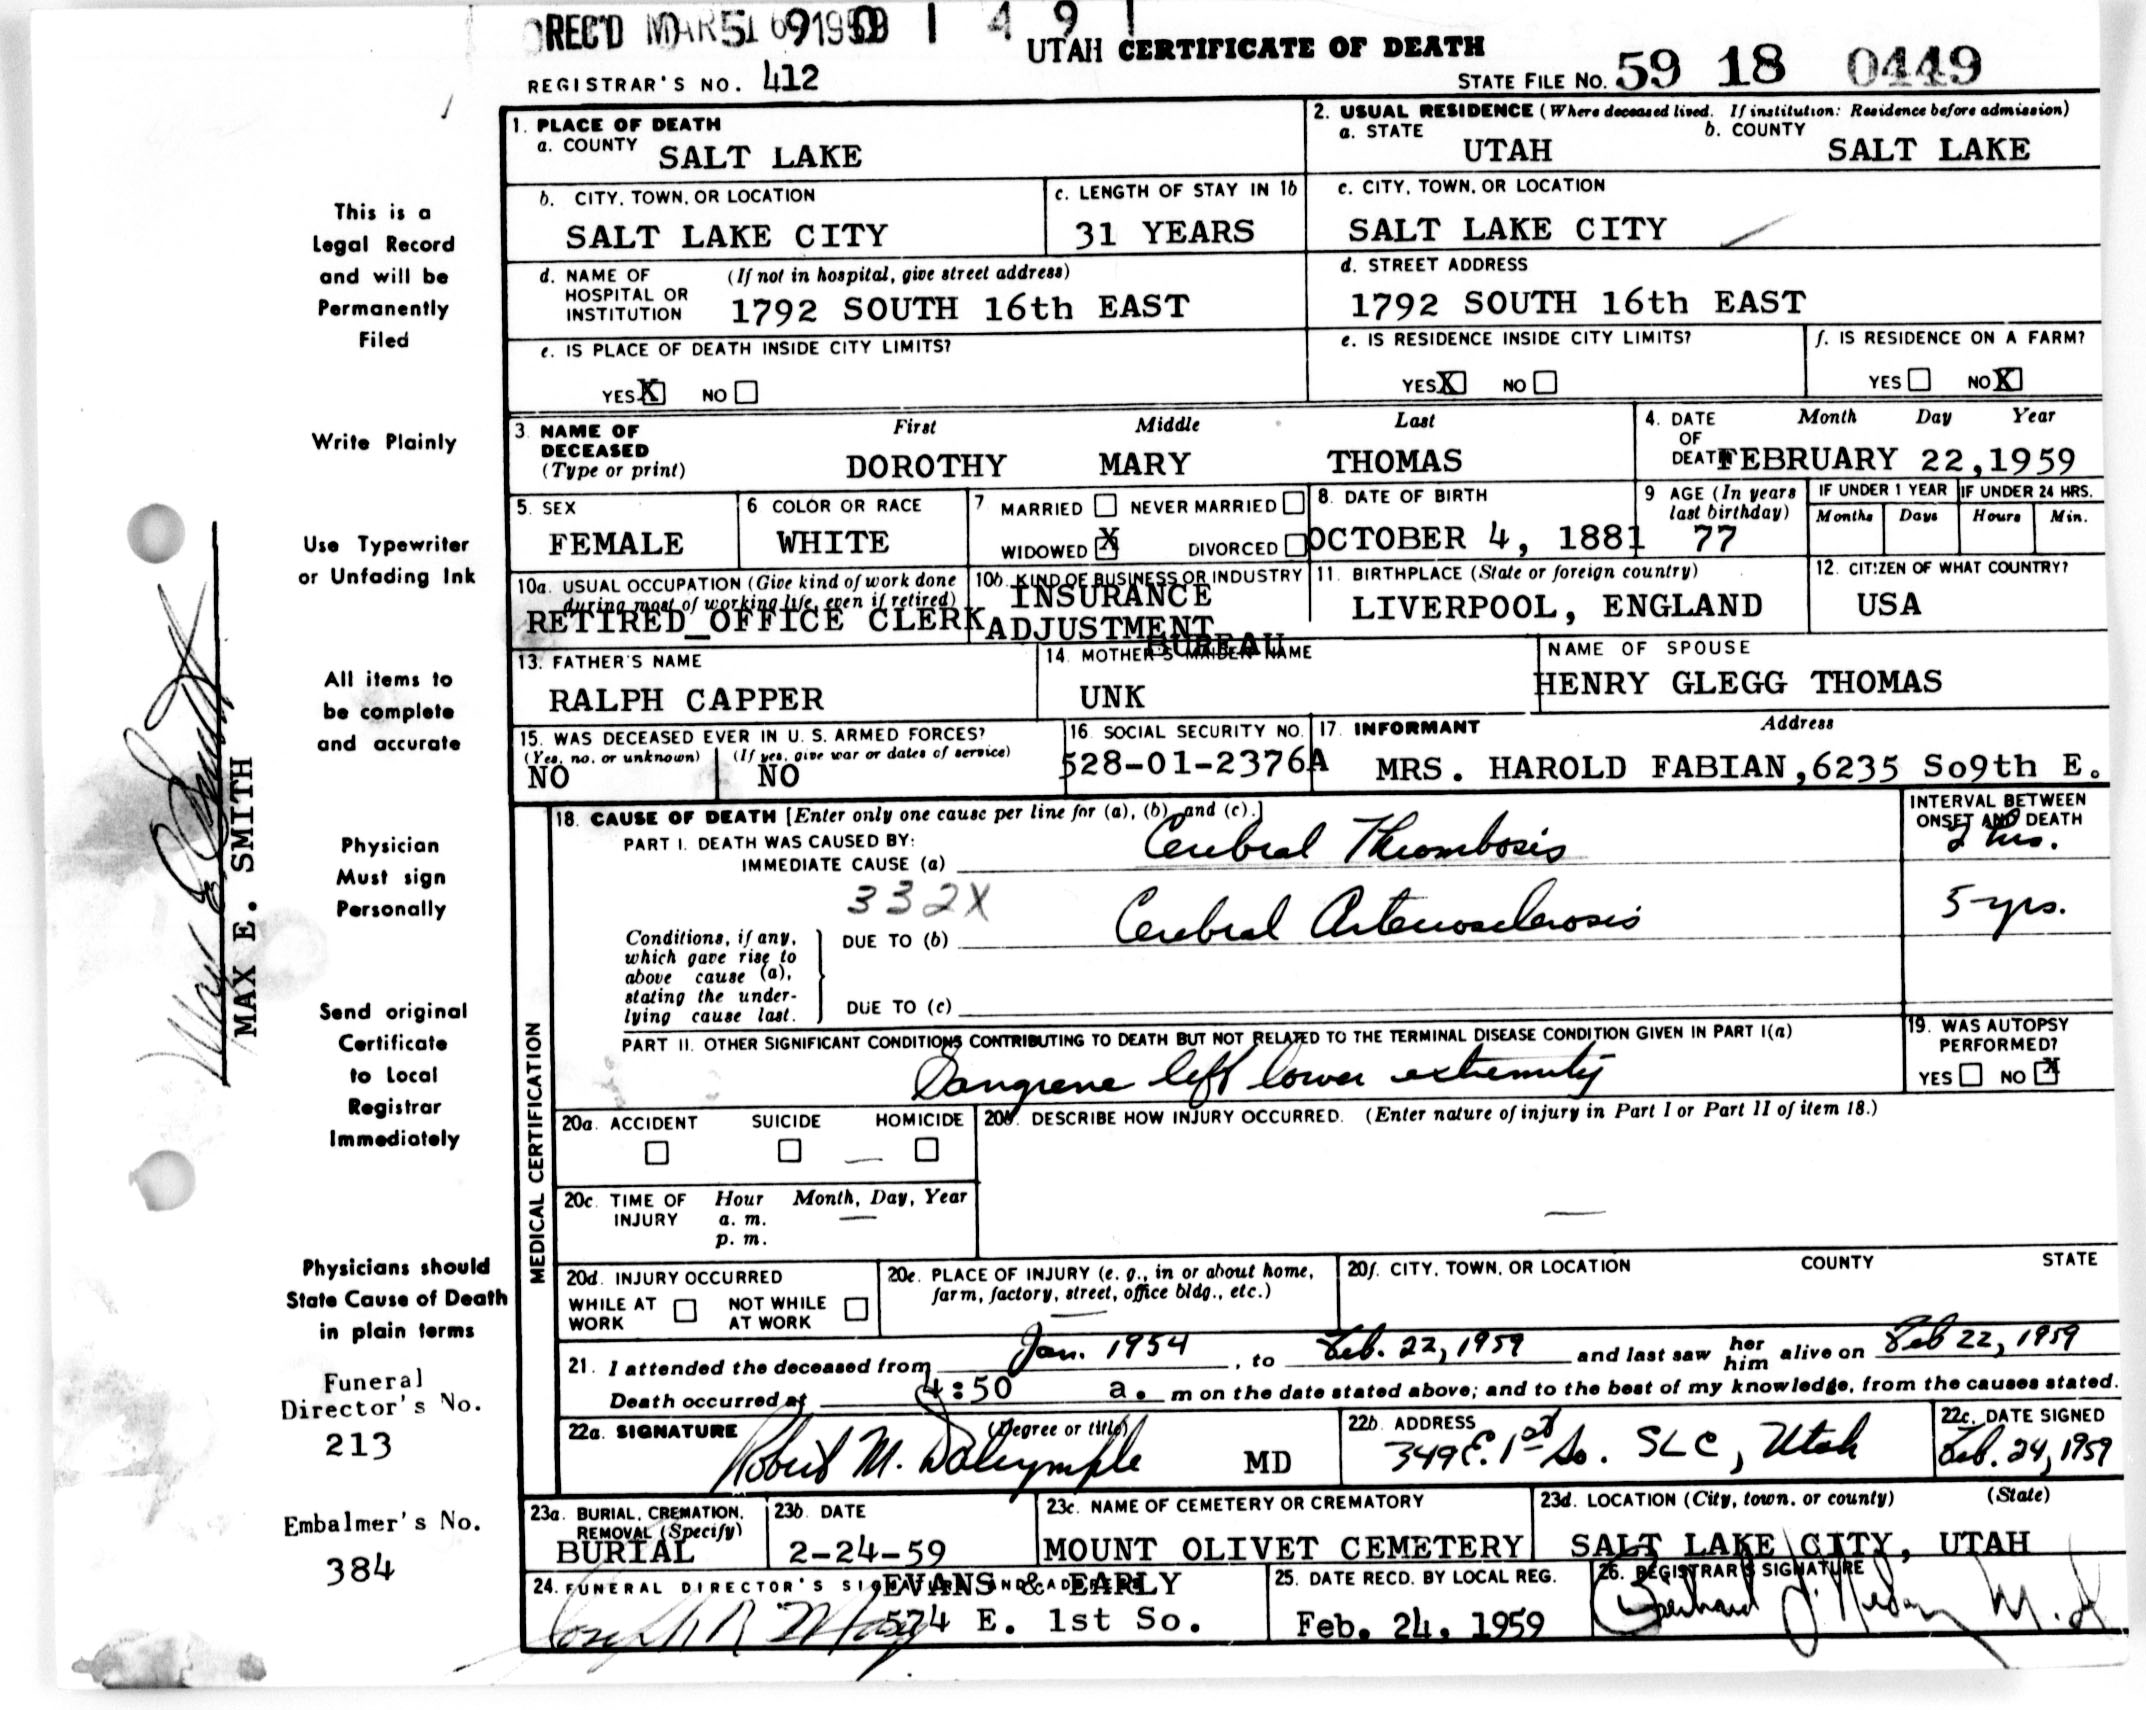 REC'D MAR 1959 1 4 9 1
UTAH CERTIFICATE OF DEATH
REGISTRAR'S NO. 412
STATE FILE NO. 59 18 0449
This is a
Legal Record
and will be
Permanently
Filed
Write Plainly
Use Typewriter
or Unfading Ink
All items to
be complete
and accurate
Physician
Must sign
Personally
Send original
Certificate
to Local
Registrar
Immediately
Physicians should
State Cause of Death
in plain terms
Funeral
Director's No.
213
Embalmer's No.
384
MAX E. SMITH
1. PLACE OF DEATH
a. COUNTY SALT LAKE
2. USUAL RESIDENCE (Where deceased lived. If institution: Residence before admission)
a. STATE UTAH b. COUNTY SALT LAKE
b. CITY, TOWN, OR LOCATION
SALT LAKE CITY
c. LENGTH OF STAY IN 1b
31 YEARS
c. CITY, TOWN, OR LOCATION
SALT LAKE CITY
d. NAME OF (If not in hospital, give street address)
HOSPITAL OR
INSTITUTION 1792 SOUTH 16th EAST
d. STREET ADDRESS
1792 SOUTH 16th EAST
e. IS PLACE OF DEATH INSIDE CITY LIMITS?
YES X NO
e. IS RESIDENCE INSIDE CITY LIMITS?
YES X NO
f. IS RESIDENCE ON A FARM?
YES NO X
3. NAME OF First Middle Last
DECEASED
(Type or print) DOROTHY MARY THOMAS
4. DATE Month Day Year
OF
DEATH FEBRUARY 22,1959
5. SEX
FEMALE
6 COLOR OR RACE
WHITE
7 MARRIED NEVER MARRIED
WIDOWED X DIVORCED
8. DATE OF BIRTH
OCTOBER 4, 1881
9 AGE (In years
last birthday)
77
IF UNDER 1 YEAR IF UNDER 24 HRS.
Months Days Hours Min.
10a. USUAL OCCUPATION (Give kind of work done
during most of working life, even if retired)
RETIRED_OFFICE CLERK
10b. KIND OF BUSINESS OR INDUSTRY
INSURANCE
ADJUSTMENT
BUREAU
11. BIRTHPLACE (State or foreign country)
LIVERPOOL, ENGLAND
12. CITIZEN OF WHAT COUNTRY?
USA
13. FATHER'S NAME
RALPH CAPPER
14. MOTHER'S MAIDEN NAME
UNK
NAME OF SPOUSE
HENRY GLEGG THOMAS
15. WAS DECEASED EVER IN U. S. ARMED FORCES?
(Yes, no, or unknown) (If yes, give war or dates of service)
NO NO
16. SOCIAL SECURITY NO.
528-01-2376A
17. INFORMANT Address
MRS. HAROLD FABIAN,6235 So9th E.
MEDICAL CERTIFICATION
18. CAUSE OF DEATH [Enter only one cause per line for (a), (b), and (c).]
PART I. DEATH WAS CAUSED BY:
IMMEDIATE CAUSE (a) Cerebral Thrombosis
INTERVAL BETWEEN
ONSET AND DEATH
2 hrs.
332X
Conditions, if any,
which gave rise to
above cause (a),
stating the under-
lying cause last.
DUE TO (b) Cerebral Arteriosclerosis 5 yrs.
DUE TO (c)
PART II. OTHER SIGNIFICANT CONDITIONS CONTRIBUTING TO DEATH BUT NOT RELATED TO THE TERMINAL DISEASE CONDITION GIVEN IN PART I(a)
Gangrene left lower extremity
19. WAS AUTOPSY
PERFORMED?
YES NO X
20a. ACCIDENT SUICIDE HOMICIDE
20b. DESCRIBE HOW INJURY OCCURRED. (Enter nature of injury in Part I or Part II of item 18.)
20c. TIME OF Hour Month, Day, Year
INJURY a. m.
p. m.
20d. INJURY OCCURRED
WHILE AT NOT WHILE
WORK AT WORK
20e. PLACE OF INJURY (e. g., in or about home,
farm, factory, street, office bldg., etc.)
20f. CITY, TOWN, OR LOCATION COUNTY STATE
21. I attended the deceased from Jan. 1954, to Feb. 22, 1959 and last saw her him alive on Feb 22, 1959
Death occurred at 4:50 a. m on the date stated above; and to the best of my knowledge, from the causes stated.
22a. SIGNATURE (Degree or title)
Robert M. Dalrymple MD
22b. ADDRESS
349 E. 1st So. SLC, Utah
22c. DATE SIGNED
Feb. 24, 1959
23a. BURIAL, CREMATION,
REMOVAL (Specify)
BURIAL
23b. DATE
2-24-59
23c. NAME OF CEMETERY OR CREMATORY
MOUNT OLIVET CEMETERY
23d. LOCATION (City, town, or county) (State)
SALT LAKE CITY, UTAH
24. FUNERAL DIRECTOR'S SIGNATURE AND ADDRESS
EVANS & EARLY
574 E. 1st So.
25. DATE RECD. BY LOCAL REG.
Feb. 24, 1959
26. REGISTRAR'S SIGNATURE